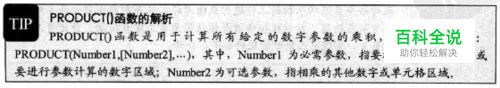 TIP
PRODUCT()函数的解析
PRODUCT()函数是用于计算所有给定的数字参数的乘积,
PRODUCT(Number1,[Number2],...), 其中, Number1 为必需参数, 指要 或
要进行参数计算的数字区域; Number2 为可选参数, 指相乘的其他数字或单元格区域.
百科全说
助你轻松解决